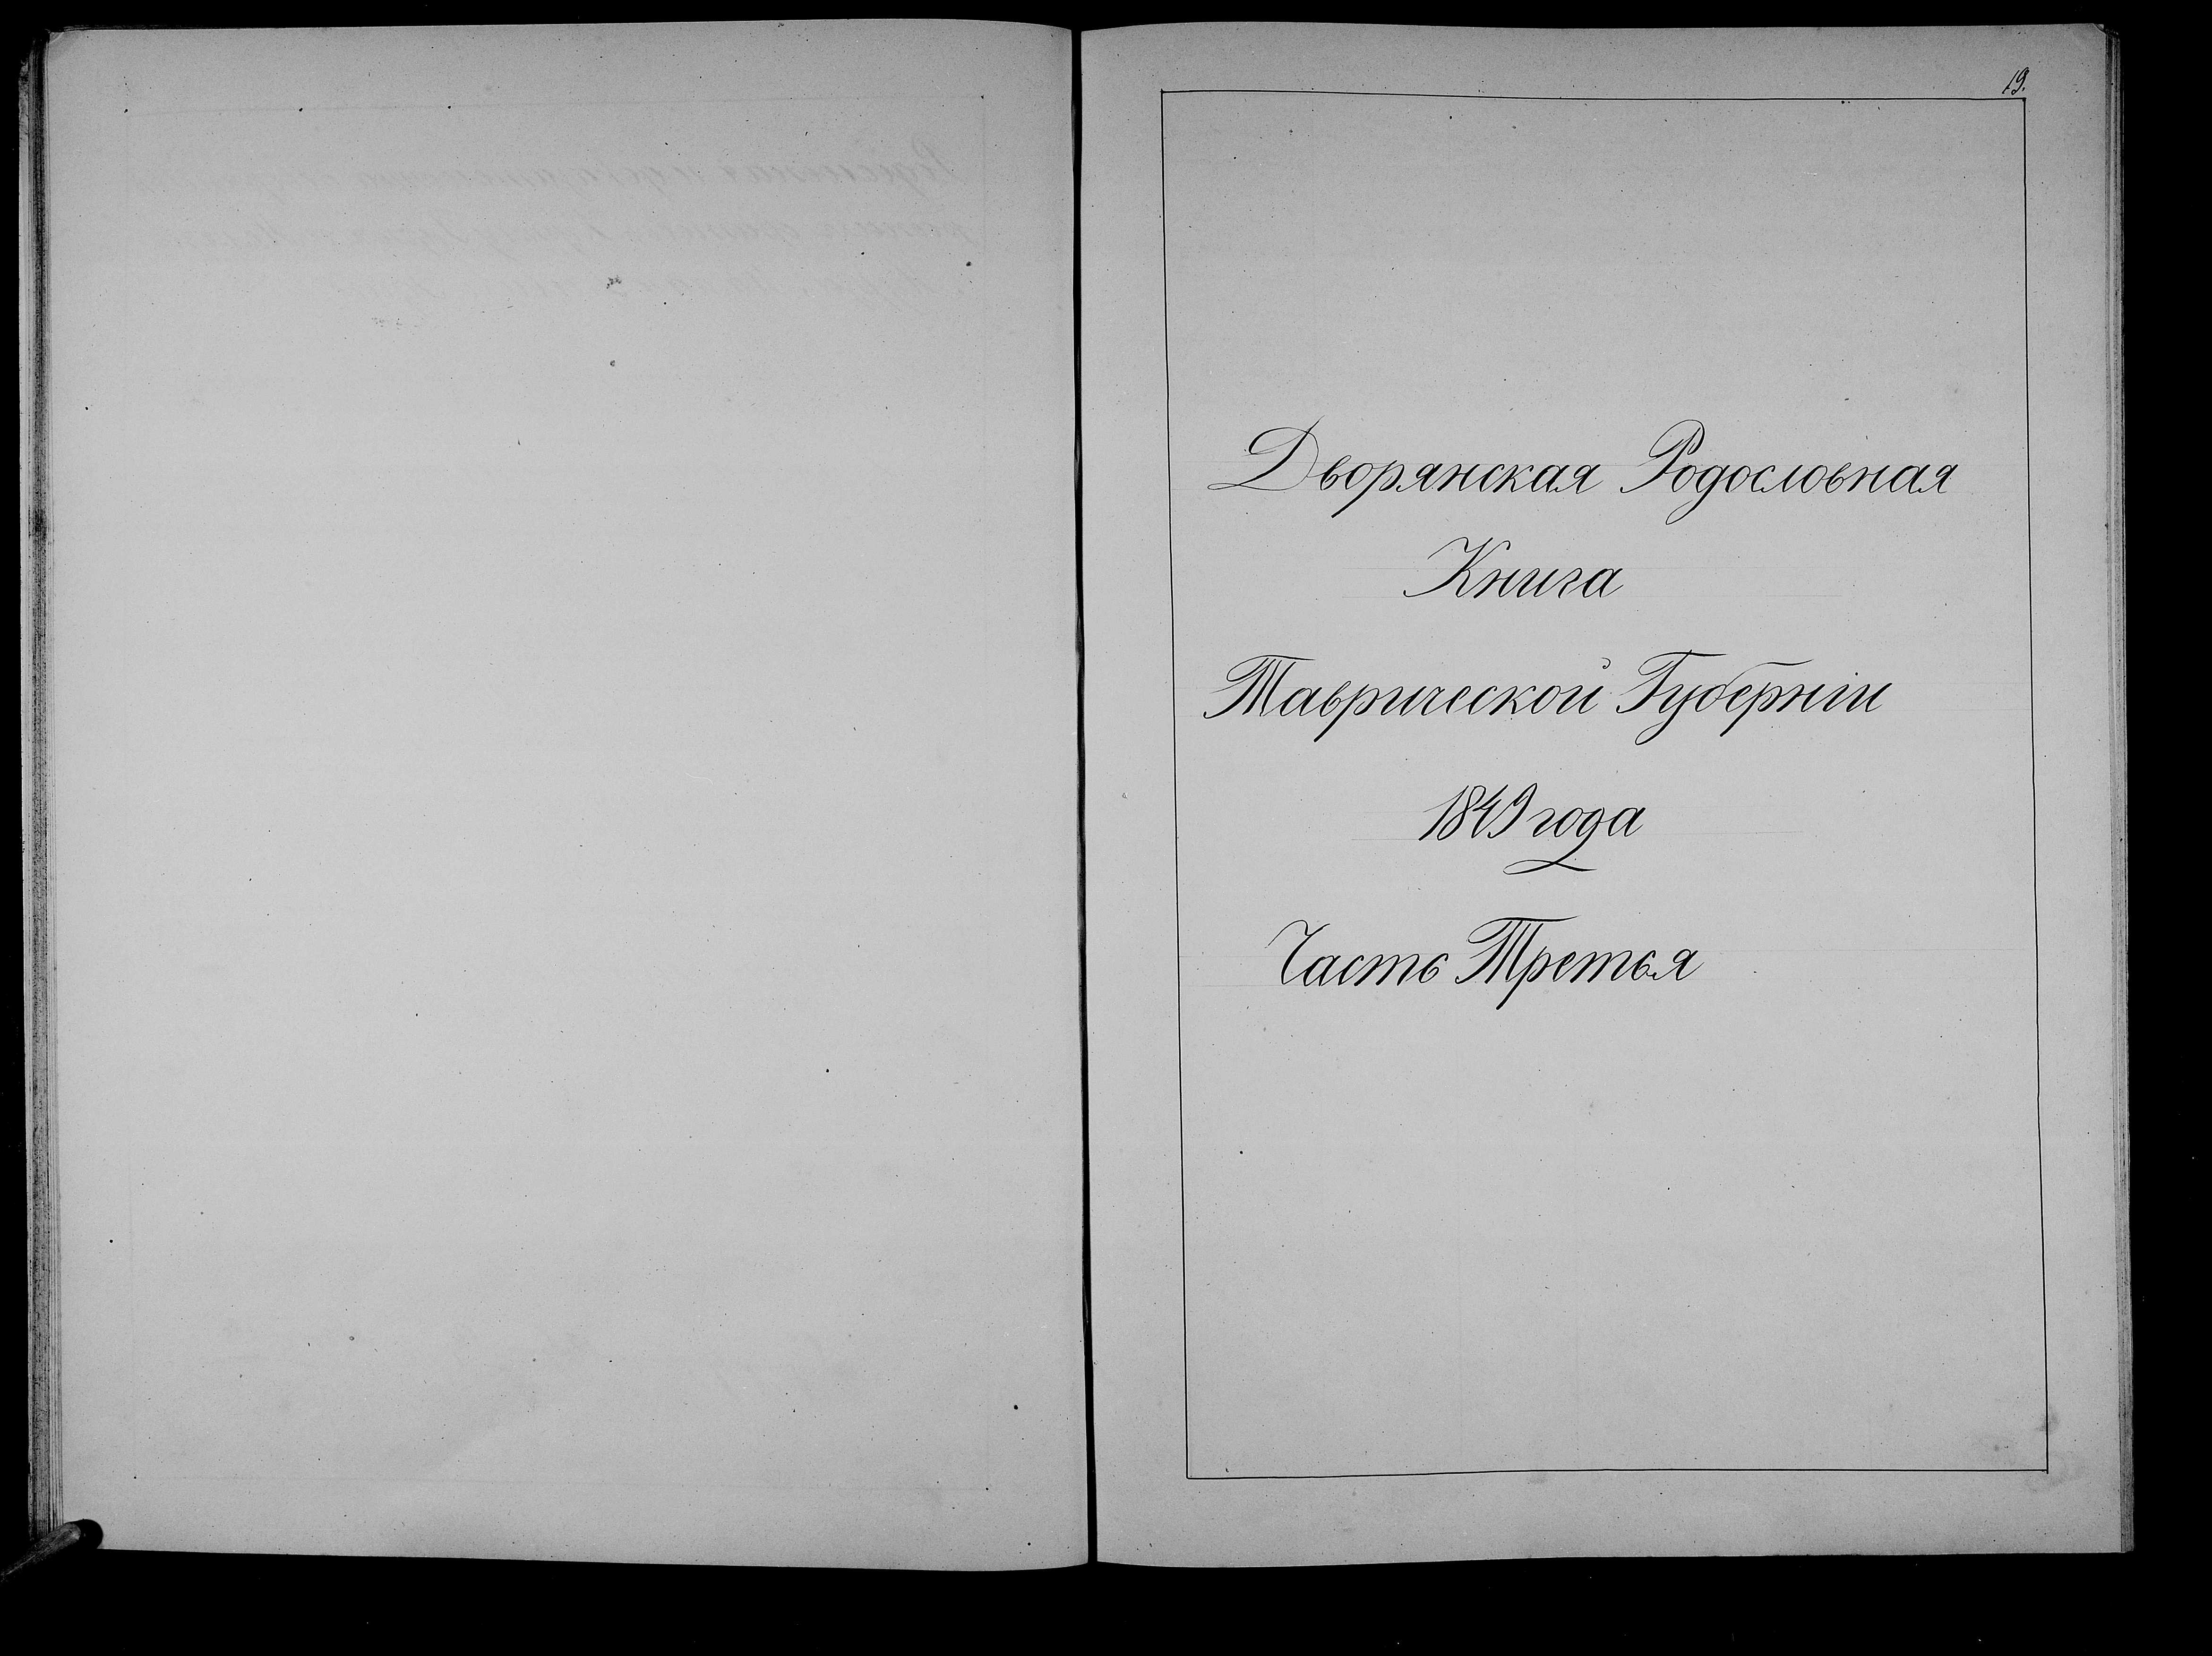 19.
Дворянская Родословная
Книга
Таврической Губерніи
1849 года
Часть Третья